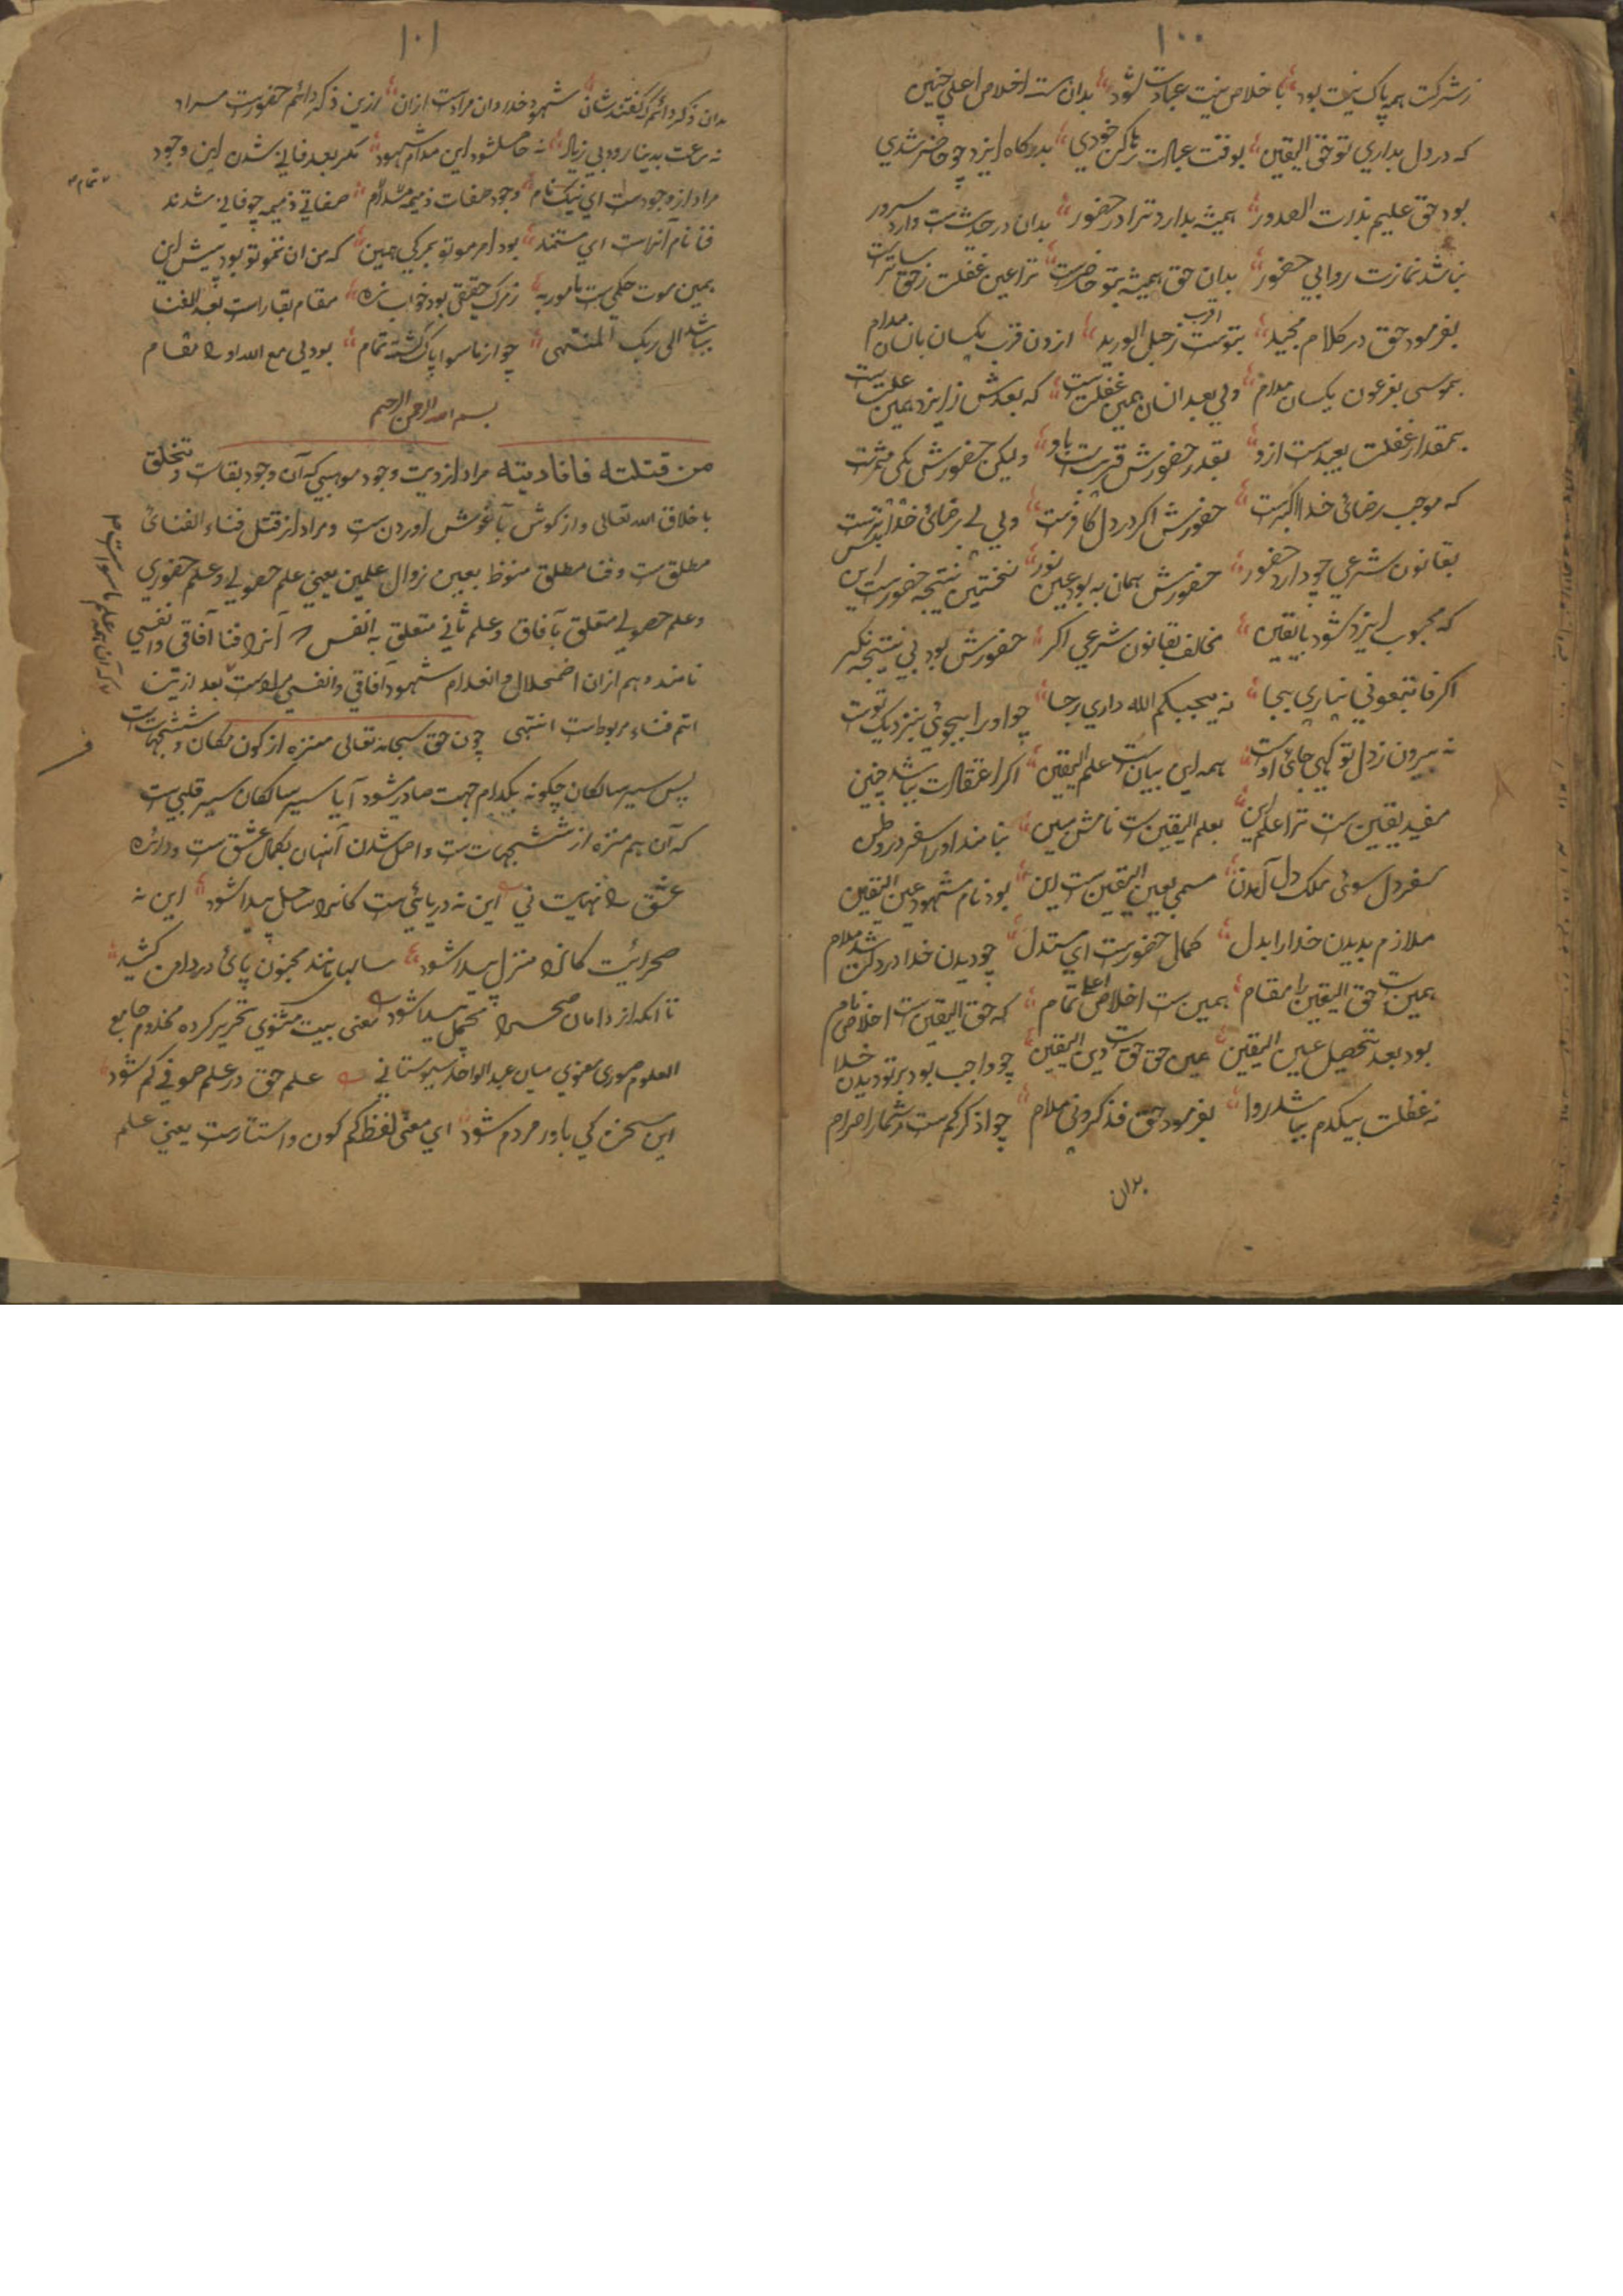 ۱۰۰
زشرکت هم پاک نیت بود با خلاص نیت عبادت شود بدان ست اخلاص اعلی چنین
که در دل بداری تو حق الیقین بوقت عبادت رها کن خودی بدرگاه ایزد چو حاضر شدی
بود حق علیم بذات الصدور همیشه بدارد ترا در حضور بدان در حدیث ست وارد سرور
نباشد نمازت روا بی حضور بدان حق همیشه بتو حاضرست ترا عین غفلت زحق
بفرمود حق در کلام مجید بتوست اقرب زحبل الورید ازون قرب یکسان بانسان مدام
بموسی بفرعون یکسان مدام ولی بعد انسان همین غفلت ست که بعدش زایزد همین علت ست
بمقدار غفلت بعیدست ازو بقدر حضورش قریب ست باو ولیکن حضورش یکی
که موجب رضائ خدا اکبرست حضورش اکر در دل کافرست ولی بی رضائ خدا
بقانون شرعی چو دارد حضور حضورش همان به بود عین نور نخستین نتیجه حضورست این
که محبوب ایزد شود بالیقین مخالف بقانون شرعی اکر حضورش بود بی نتیجه نکر
اکر فاتبعونی نیاری بجا نه یحببکم الله داری رجا چو او را بجوئی بنزدیک توست
نه بیرون زدل تو کهی جائ اوست همه این بیان ست علم الیقین اکر اعتقادت بباشد چنین
مفید یقین ست ترا علم این بعلم الیقین ست نامش مبین نباند او را سفر در وطن
سفر دل سوئ ملک دل آمدن مسمی بعین الیقین ست این بود نام مشهود عین الیقین
ملازم بدیدن خدا را بدل کمال حضورست ای مستدل چو دیدن خدا در دلت شد مدام
همین ست حق الیقین را مقام همین ست اخلاص اعلی تمام که حق الیقین ست اخلاص نام
بود بعد تحصیل عین الیقین عین حق حق ست دین الیقین چو واجب بود بر تو دیدن خدا
نه غفلت بیکدم بباشد روا بفرمود حق فذکرونی مدام چو اذکرکم ست مر شمارا مرام
بدان
۱۰۱
بدان ذکر دائم که گفتند شان شهود خدا دان مرادست ازان ازین ذکر دائم حضورست مراد
نه حاصل شود این مدام شهود مکر بعد فانی شدن این وجود
مراد از وجودست ای نیک نام وجود صفات ذمیمه مدام صفاتی ذمیمه چو فانی شدند
فنا نام آنراست ای مستمند بود امر موتو بمرکی همین که من ان تموتو بود پیش این
همین موت حکمی ست مامور به زمرک حقیقی بود خواب به مقام بقا راست بعد الفنا
بباشد الی ربک المنتهی چو از ماسوا پاک گشته تمام بود لی مع الله او را مقام
تمام
بسم الله الرحمن الرحیم
من قتلته فانا دیته مراد از دیت وجود موهبی که آن وجود بقاست و تخلق
باخلاق الله تعالی و از کوش بآغوش آوردن ست و مراد از قتل فناء الفنائ
مطلق ست و فنا مطلق منوط بعین زوال علمین یعنی علم حصولی و علم حضوری
و علم حصولی متعلق بآفاق و علم ثانی متعلق به انفس آنرا فنا آفاقی و انفسی
نامند و هم ازان اضمحلال و انعدام شهود آفاقی و انفسی مرادست بعد ازیتن
اتم فناء مربوط ست انتهی چون حق سبحانه تعالی منزه از کون مکان و ششجهات ست
پس سیر سالکان چکونه بکدام جهت صادر شود آیا سیر سالکان سیر قلبی ست
که آن هم منزه از ششجهات ست و اصل شدن آنهان بکمال عشق ست و دائره
عشق را نهایت نی این نه دریائی ست کانرا ساحل پیدا شود این نه
صحرائیت کانرا منزل پیدا شود سالها مانند مجنون پائ در دامن کشید
تا انکه از دامان صحرا محمل پیدا شود معنی بیت مثنوی تحریر کرده مخدوم جامع
العلوم صوری معنوی میان عبد الواحد سیوستانی علم حق در علم صوفی کم شود
این سخن کی باور مردم شود ای معنی لفظ کم کون و استتارست یعنی علم